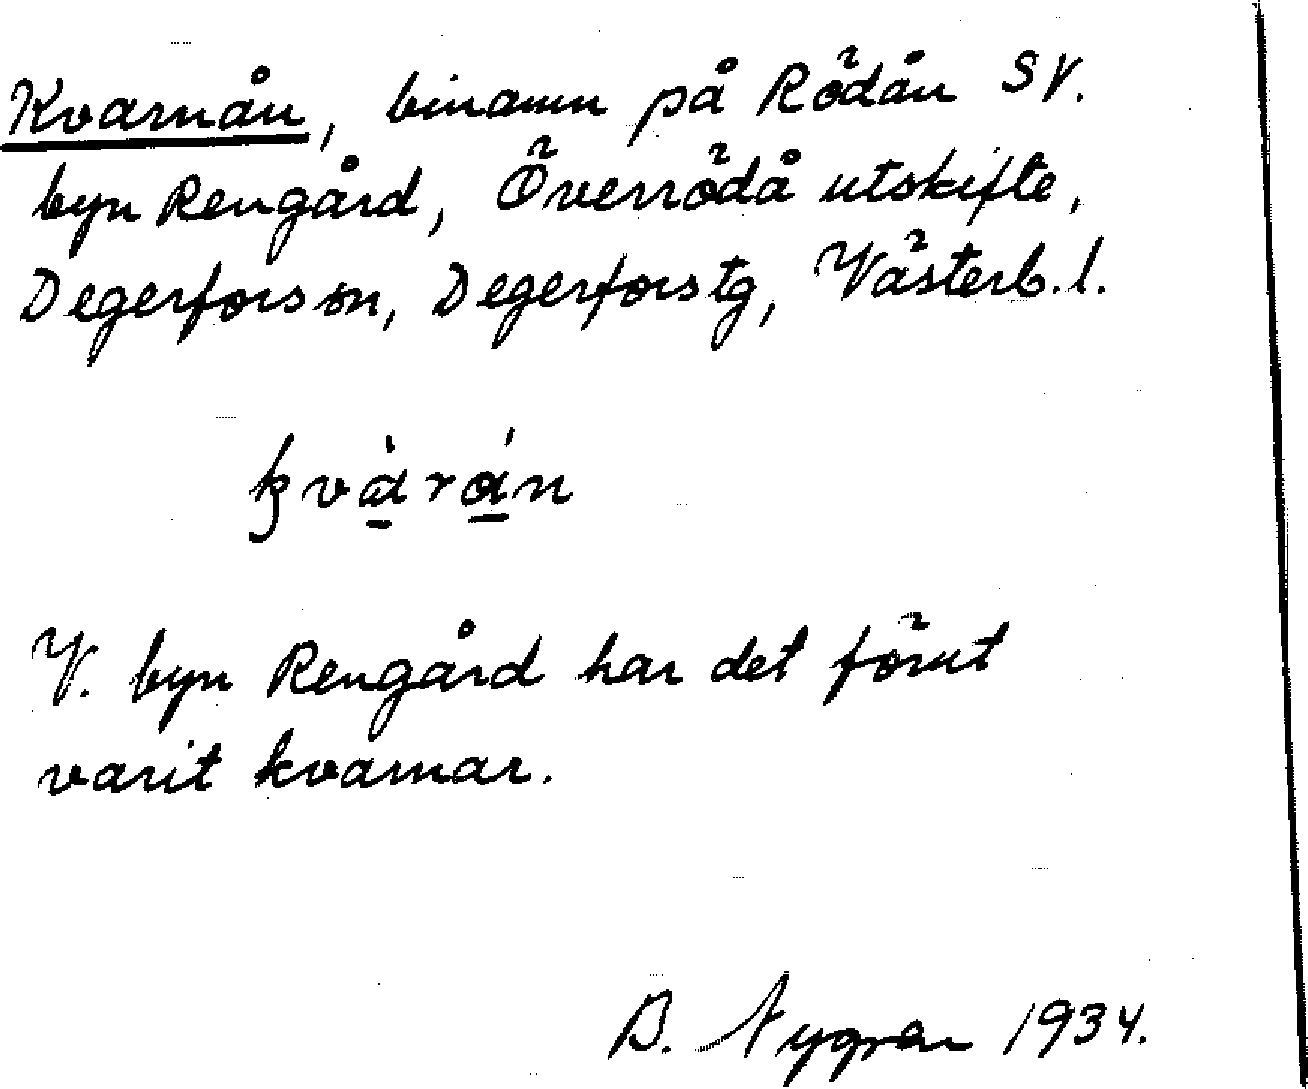 Kvarnån, binamn på Rödån SV.
byn Rengård, Överrödå utskifte,
Degerfors sn, Degerfors tg, Västerb. l.
kvàrán
V. byn Rengård har det förut
varit kvarnar.
B. Nygren 1934.